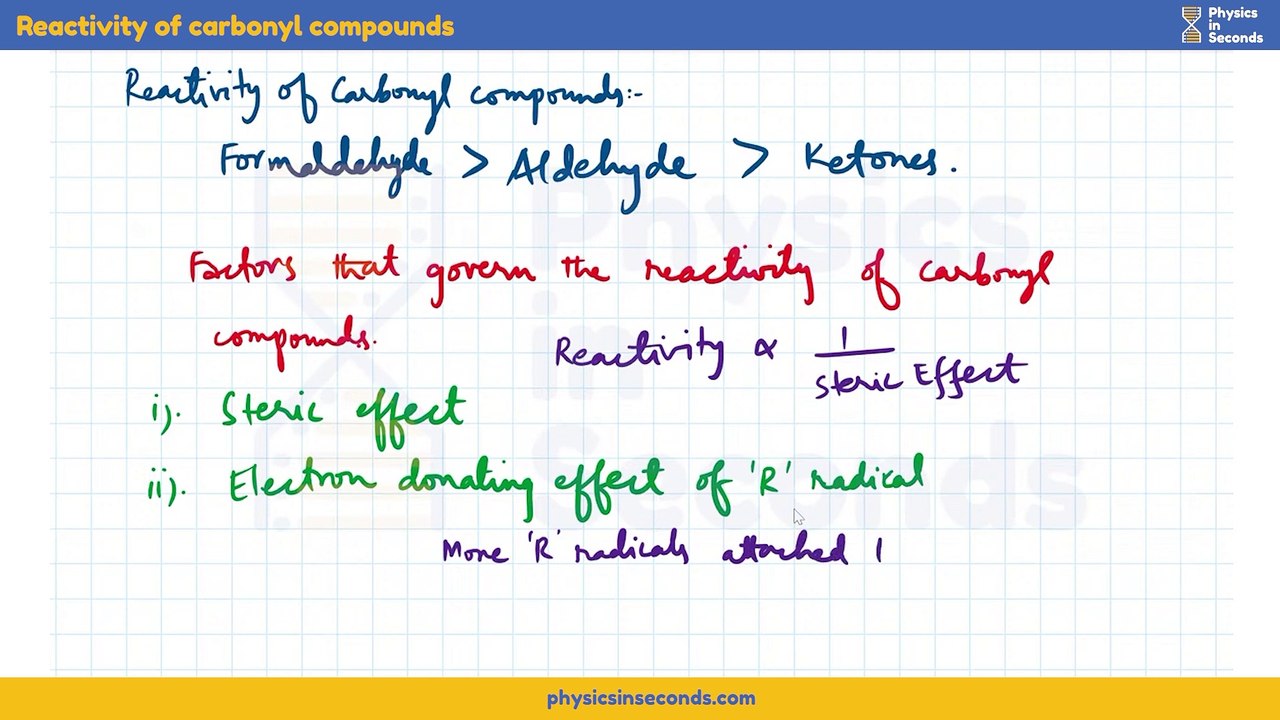 Reactivity of carbonyl compounds
Physics
in
Seconds
Reactivity of Carbonyl compounds:-
Formaldehyde > Aldehyde > Ketones.
Factors that govern the reactivity of carbonyl
compounds.
Reactivity ∝ 1 / Steric Effect
i). Steric effect
ii). Electron donating effect of 'R' radical
More 'R' radicals attached l
Physics
in
Seconds
physicsinseconds.com